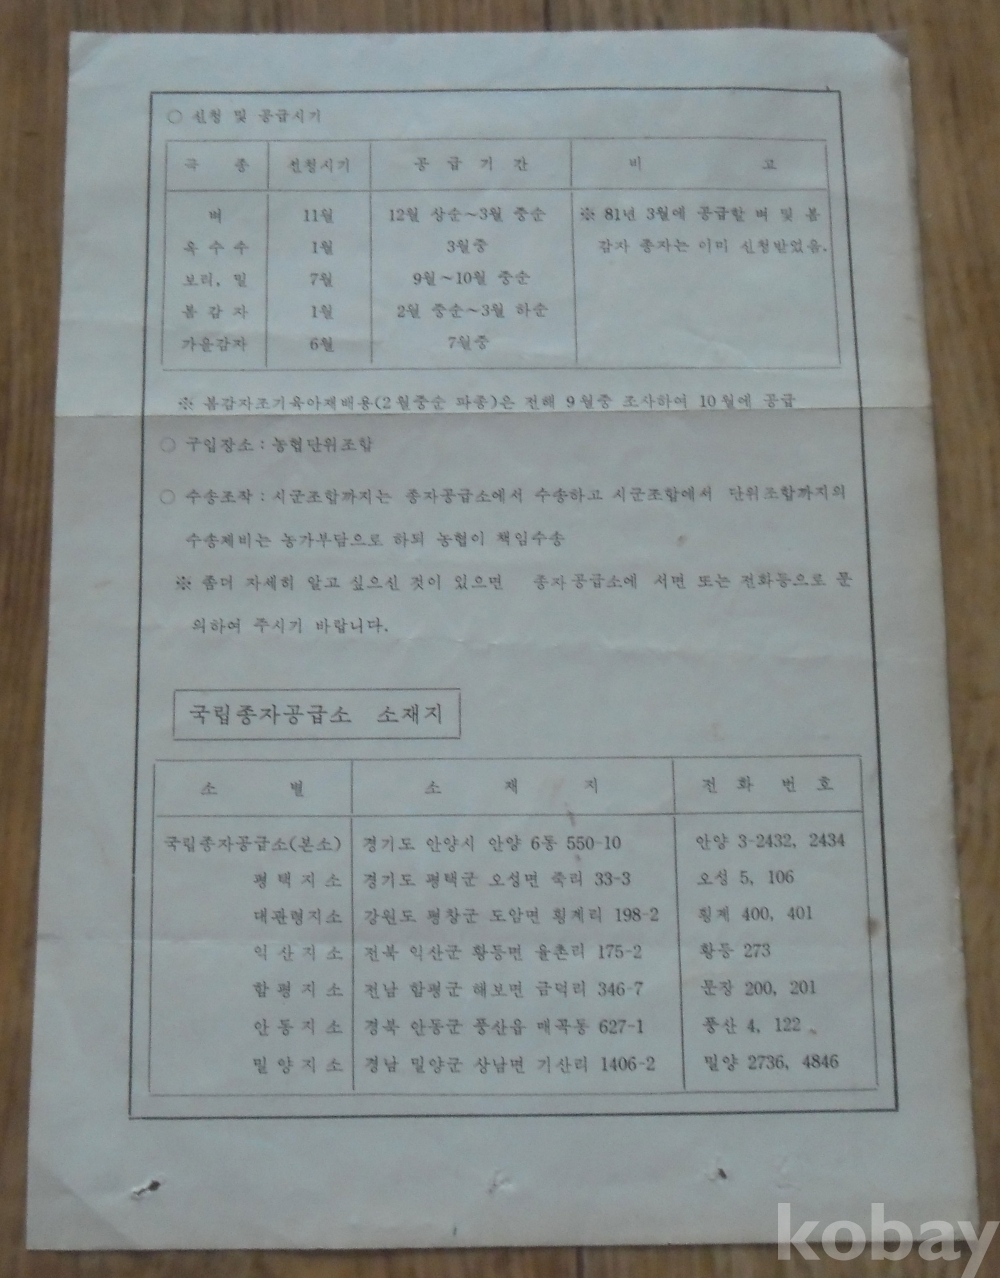 ○ 신청 및 공급시기
곡 종 신청시기 공 급 기 간 비 고
벼 11월 12월 상순~3월 중순 ※ 81년 3월에 공급할 벼 및 봄
옥 수 수 1월 3월중 감자 종자는 이미 신청받았음.
보리, 밀 7월 9월~10월 중순
봄 감 자 1월 2월 중순~3월 하순
가을감자 6월 7월중
※ 봄감자조기육아재배용(2월중순 파종)은 전해 9월중 조사하여 10월에 공급
○ 구입장소 : 농협단위조합
○ 수송조작 : 시군조합까지는 종자공급소에서 수송하고 시군조합에서 단위조합까지의
수송체비는 농가부담으로 하되 농협이 책임수송
※ 좀더 자세히 알고 싶으신 것이 있으면 종자공급소에 서면 또는 전화등으로 문
의하여 주시기 바랍니다.
국립종자공급소 소재지
소 별 소 재 지 전 화 번 호
국립종자공급소(본소) 경기도 안양시 안양 6동 550-10 안양 3-2432, 2434
평 택 지 소 경기도 평택군 오성면 죽리 33-3 오성 5, 106
대관령지소 강원도 평창군 도암면 횡계리 198-2 횡계 400, 401
익 산 지 소 전북 익산군 황등면 율촌리 175-2 황등 273
함 평 지 소 전남 함평군 해보면 금덕리 346-7 문장 200, 201
안 동 지 소 경북 안동군 풍산읍 매곡동 627-1 풍산 4, 122
밀 양 지 소 경남 밀양군 상남면 기산리 1406-2 밀양 2736, 4846
kobay